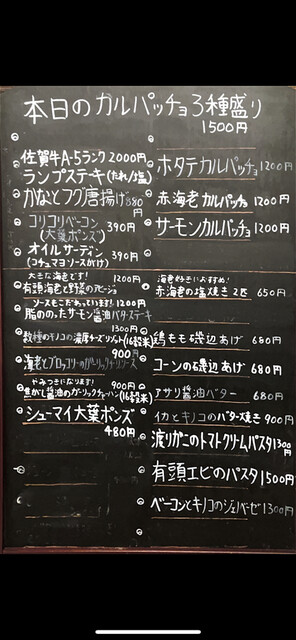 本日のカルパッチョ3種盛り
1500円
佐賀牛A-5ランク 2000円
ランプステーキ(たれ/塩)
かなとフグ唐揚げ 880円
コリコリベーコン
(大葉ポンズ) 390円
オイルサーディン
(コチュマヨソースがけ) 390円
大きな海老です! 1200円
有頭海老と野菜のアヒージョ
ソースもこだわっています! 1200円
脂ののったサーモン醤油バターステーキ
1300円
数種のキノコの濃厚チーズリゾット(16穀米)
900円
海老とブロッコリーのガーリックチリソース
やみつきになります! 900円
焦がし醤油のガーリックチャーハン(16穀米)
シューマイ大葉ポンズ
480円
ホタテカルパッチョ 1200円
赤海老カルパッチョ 1200円
サーモンカルパッチョ 1200円
海老好きにおすすめ!
赤海老の塩焼き2匹 650円
鶏もも磯辺あげ 680円
コーンの磯辺あげ 680円
アサリ醤油バター 680円
イカとキノコのバター焼き 900円
渡りガニのトマトクリームパスタ 1300円
有頭エビのパスタ 1500円
ベーコンとキノコのジェノベーゼ 1300円